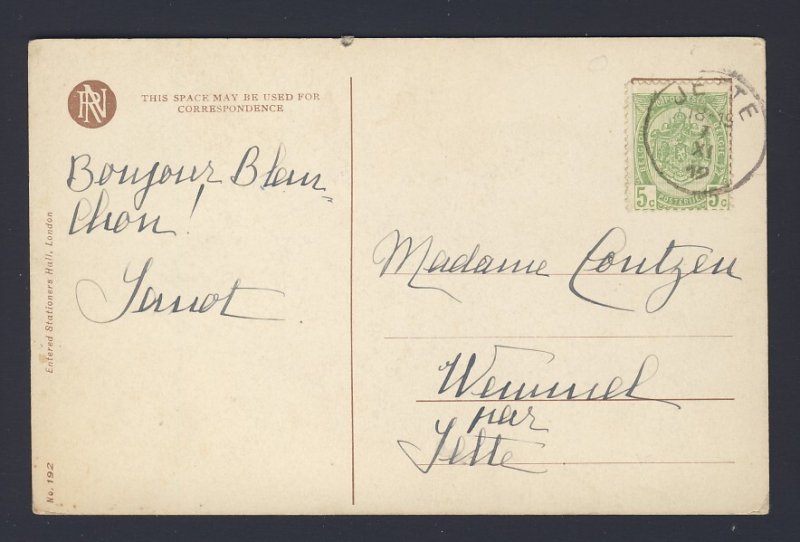 THIS SPACE MAY BE USED FOR
CORRESPONDENCE
Bonjour Blan-
chon!
Entered Stationers Hall, London
No. 192
JETTE
1
XI
5c POSTERIJEN 5c
Madame Coutzen
Wemmel
par
Jette